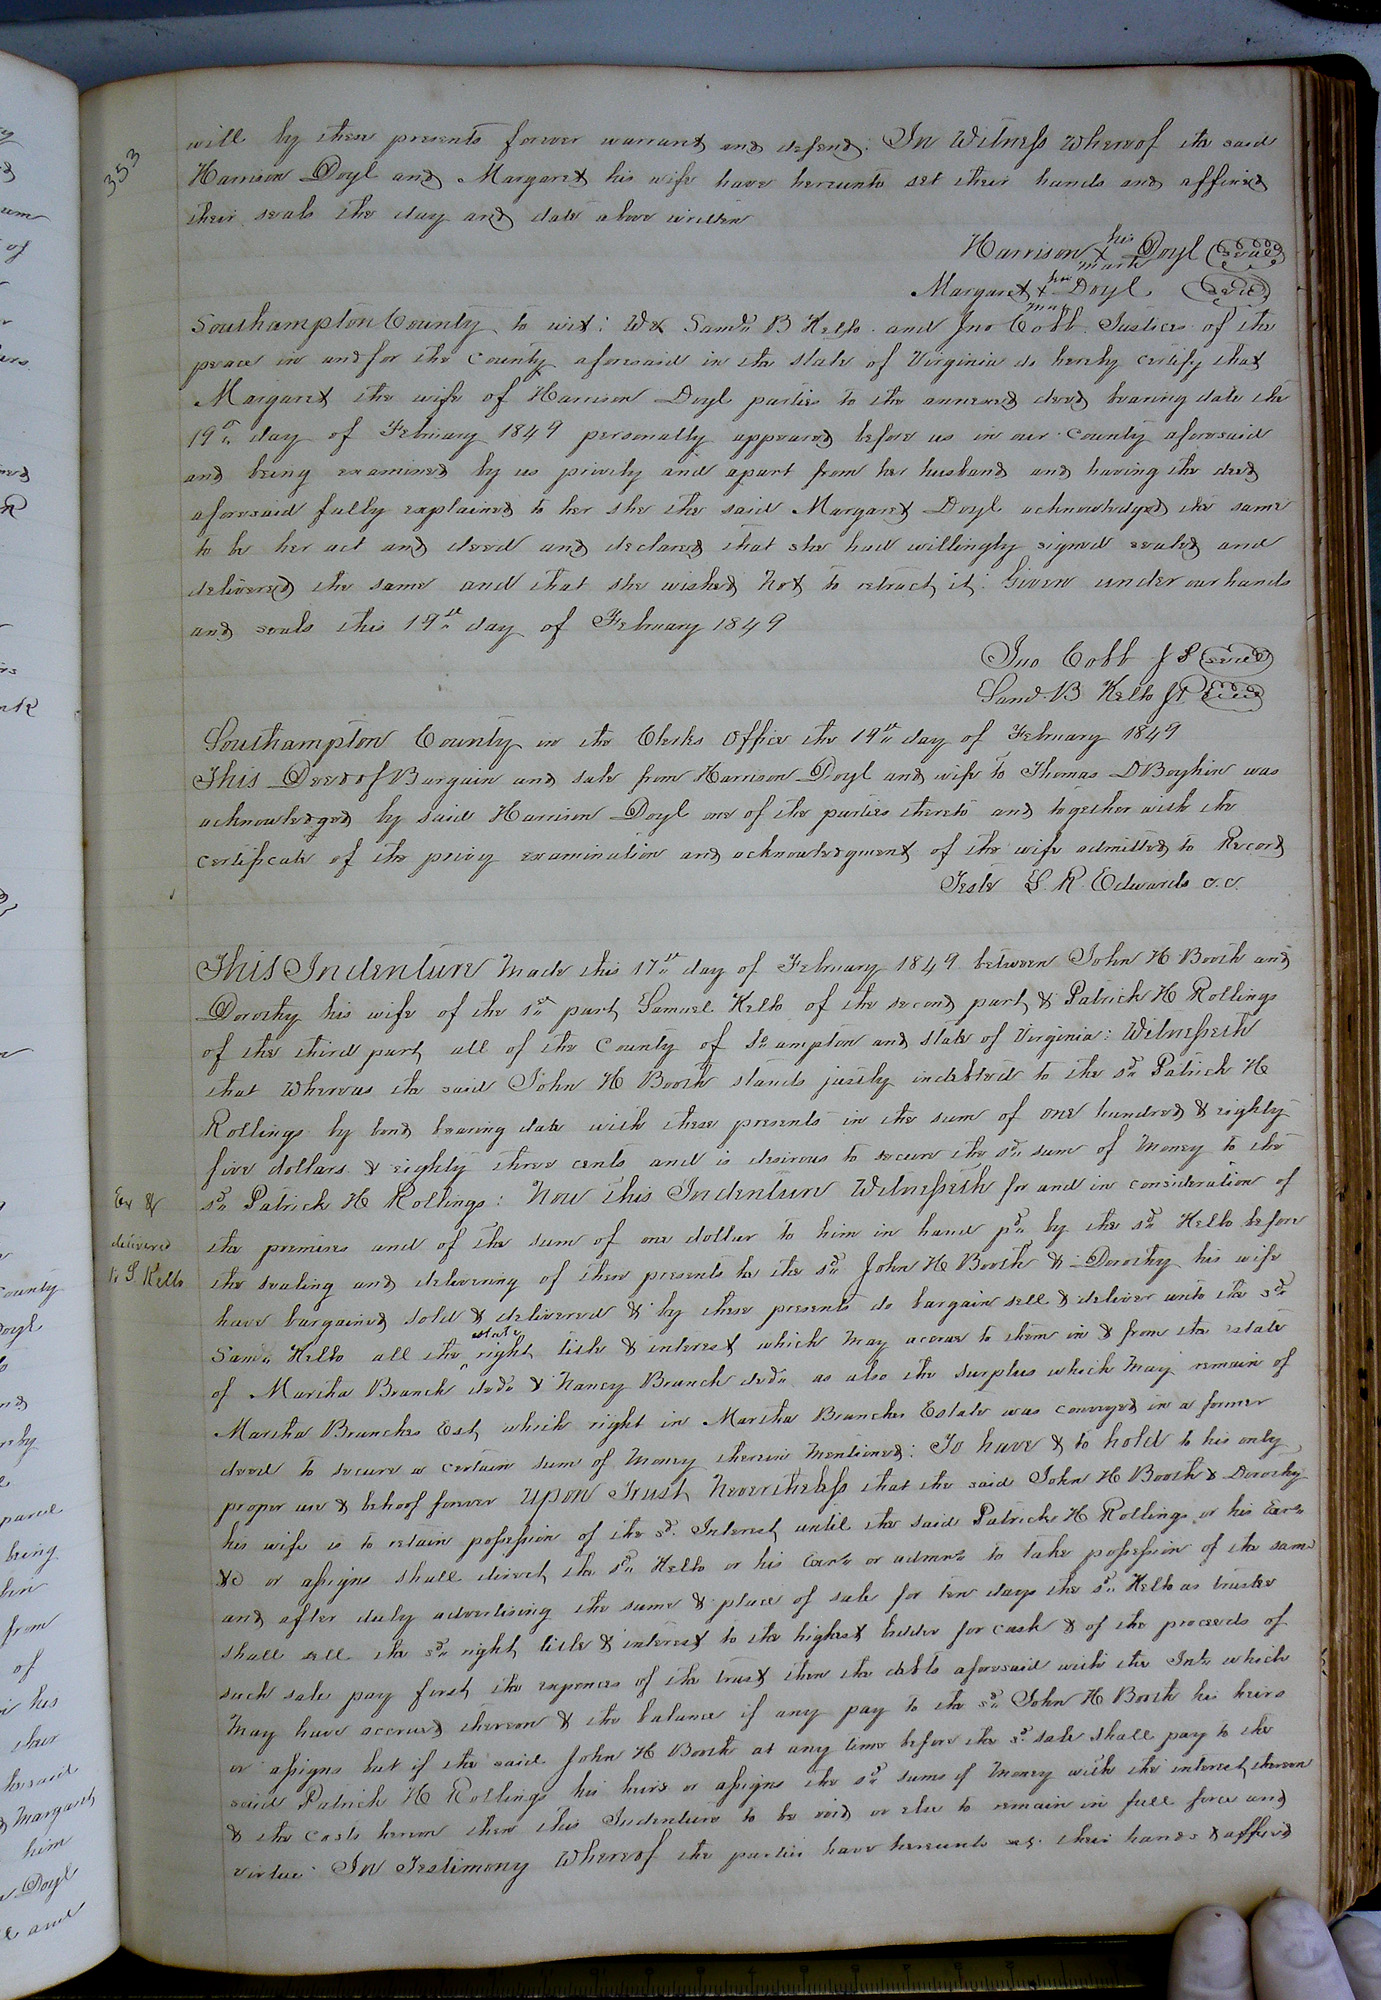 353
will by these presents forever warrant and defend: In Witness Whereof the said
Harrison Doyl and Margaret his wife have hereunto set their hands and affixed
their seals the day and date above written
Harrison his X mark Doyl (seal)
Margaret her + mark Doyl (seal)
Southampton County to wit: We Saml B Kello and Jno Cobb Justices of the
peace in and for the County aforesaid in the state of Virginia do hereby certify that
Margaret the wife of Harrison Doyl parties to the annexed deed bearing date the
19th day of February 1849 personally appeared before us in our County aforesaid
and being examined by us privily and apart from her husband and having the deed
aforesaid fully explained to her she the said Margaret Doyl acknowledged the same
to be her act and deed and declared that she had willingly signed sealed and
delivered the same and that she wished not to retract it: Given under our hands
and seals this 19th day of February 1849
Jno Cobb J P (seal)
Saml B Kello J P (seal)
Southampton County in the Clerks Office the 19th day of February 1849
This Deed of Bargain and sale from Harrison Doyl and wife to Thomas D Boykin was
acknowledged by said Harrison Doyl one of the parties thereto and together with the
Certificate of the privy examination and acknowledgment of the wife admitted to Record
Teste L. R. Edwards c.c.
This Indenture Made this 17th day of February 1849 between John H Booth and
Dorothy his wife of the 1st part Samuel Kello of the second part & Patrick H Rollings
of the third part all of the County of So ampton and state of Virginia: Witnesseth
that Whereas the said John H Booth stands justly indebted to the sd Patrick H
Rollings by bond bearing date with these presents in the sum of one hundred & eighty
five dollars & eighty three cents and is desirous to secure the sd sum of Money to the
sd Patrick H Rollings: Now This Indenture Witnesseth for and in consideration of
the premises and of the sum of one dollar to him in hand pd by the sd Kello before
the sealing and delivering of these presents he the sd John H Booth & Dorothy his wife
have bargained sold & delivered & by these presents do bargain sell & deliver unto the sd
Saml Kello all the estate right title & interest which May accrue to them in & from the estate
of Martha Branch decd & Nancy Branch decd as also the surplus which May remain of
Martha Branches Est which right in Martha Branches Estate was conveyed in a former
deed to secure a certain sum of Money therein Mentioned: To have & to hold to his only
proper use & behoof forever Upon Trust Nevertheless that the said John H Booth & Dorothy
his wife is to retain possession of the sd. Interest until the said Patrick H Rollings or his Exrs
&c or assigns shall direct the sd Kello or his Exrs or admrs to take possession of the same
and after duly advertising the same & place of sale for ten days the sd Kello as trustee
shall sell the sd right title & interest to the highest bidder for cash & of the proceeds of
such sale pay first the expences of the trust then the debts aforesaid with the Int which
May have accrued thereon & the balance if any pay to the sd John H Booth his heirs
or assigns but if the said John H Booth at any time before the sd sale shall pay to the
said Patrick H Rollings his heirs or assigns the sd sums of Money with the interest thereon
& the costs hereon then this Indenture to be void or else to remain in full force and
virtue: In Testimony Whereof the parties have hereunto set their hands & affixed
Ex &
delivered
to S Kello